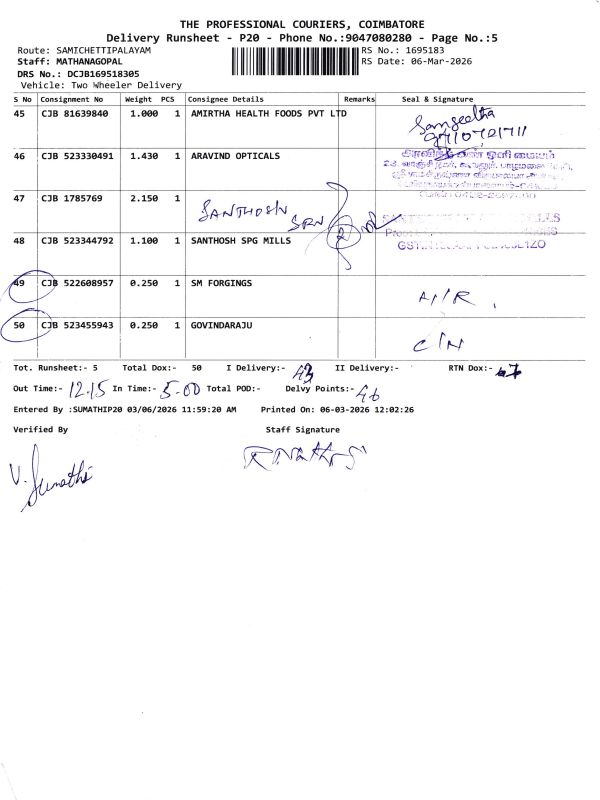 THE PROFESSIONAL COURIERS, COIMBATORE
Delivery Runsheet - P20 - Phone No.:9047080280 - Page No.:5
Route: SAMICHETTIPALAYAM
RS No.: 1695183
Staff: MATHANAGOPAL
RS Date: 06-Mar-2026
DRS No.: DCJB169518305
Vehicle: Two Wheeler Delivery
S No Consignment No Weight PCS Consignee Details Remarks Seal & Signature
45 CJB 81639840 1.000 1 AMIRTHA HEALTH FOODS PVT LTD
Sangeetha
46 CJB 523330491 1.430 1 ARAVIND OPTICALS
47 CJB 1785769 2.150 1 SANTHOSH
SRN
2
48 CJB 523344792 1.100 1 SANTHOSH SPG MILLS
49 CJB 522608957 0.250 1 SM FORGINGS A/R
50 CJB 523455943 0.250 1 GOVINDARAJU C/N
Tot. Runsheet:- 5 Total Dox:- 50 I Delivery:- 43 II Delivery:- RTN Dox:- 7
Out Time:- 12.15 In Time:- 5.00 Total POD:- Delvy Points:- 46
Entered By :SUMATHIP20 03/06/2026 11:59:20 AM Printed On: 06-03-2026 12:02:26
Verified By Staff Signature
V. Sumathi